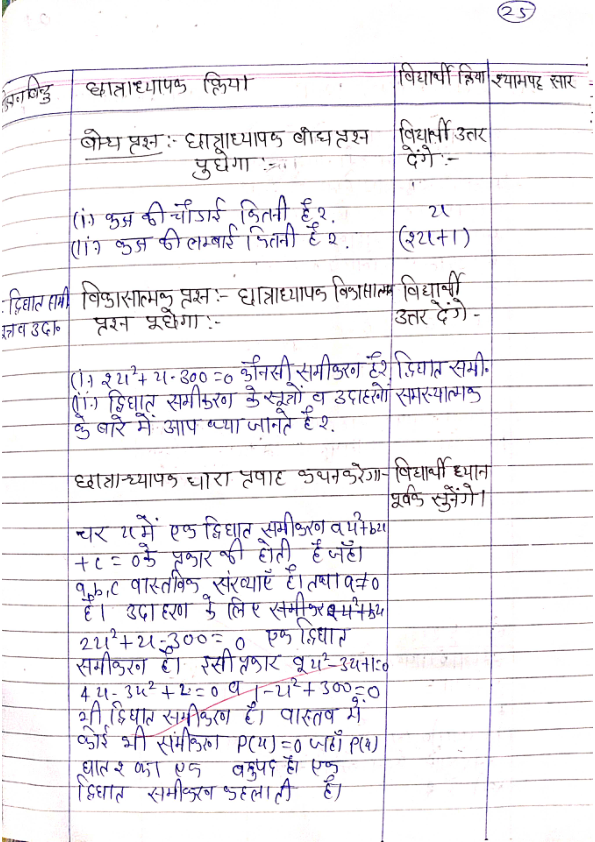 25
छात्राध्यापक क्रिया विद्यार्थी क्रिया श्यामपट्ट सार
बोध प्रश्न :- छात्राध्यापक बोध प्रश्न
पुछेगा :-
विद्यार्थी उत्तर
देंगे :-
(i) कक्ष की चौडाई कितनी है?. x
(ii) कक्ष की लम्बाई कितनी है?. (2x+1)
द्विघात समी.
व उदा॰
विकासात्मक प्रश्न :- छात्राध्यापक विकासात्मक
प्रश्न पूछेगा :-
विद्यार्थी
उत्तर देंगे -
(i) 2x²+x-300=0 कौनसी समीकरण है? द्विघात समी.
(ii) द्विघात समीकरण के सूत्रों व उदाहरणों समस्यात्मक
के बारे में आप क्या जानते है?.
छात्राध्यापक द्वारा प्रवाह कथन करेगा- विद्यार्थी ध्यान
पूर्वक सुनेंगे।
चर x में एक द्विघात समीकरण ax²+bx
+c=0 के प्रकार की होती है जहाँ
a,b,c वास्तविक संख्याएँ है। तथा a≠0
है। उदाहरण के लिए समीकरण
2x²+x-300=0 एक द्विघात
समीकरण है। इसी प्रकार 2x²-3x+1=0
4x-3x²+2=0 व 1-x²+300=0
भी द्विघात समीकरण है। वास्तव में
कोई भी समीकरण P(x)=0 जहाँ P(x)
घात 2 का एक बहुपद है। एक
द्विघात समीकरण कहलाती है।